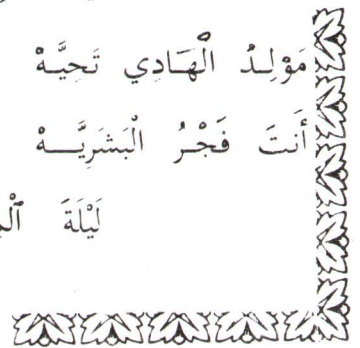 مَوْلِدُ الْهَادِي تَحِيَّهْ
أَنتَ فَجْرُ الْبَشَرِيَّهْ
لَيْلَةَ